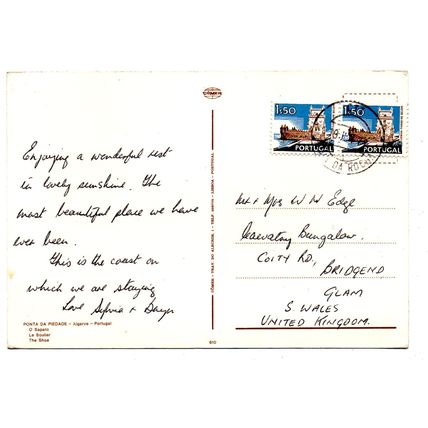 Enjoying a wonderful rest
in lovely sunshine. The
most beautiful place we have
ever been.
This is the coast on
which we are staying
Love Sylvia +
PONTA DA PIEDADE - Algarve - Portugal
O Sapato
Le Soulier
The Shoe
CÓMER
610
1$50
PORTUGAL
1$50
PORTUGAL
DA ROCHA
Mr + Mrs W H Edge
Bungalow.
COITY RD,
BRIDGEND
GLAM
S WALES
UNITED KINGDOM.